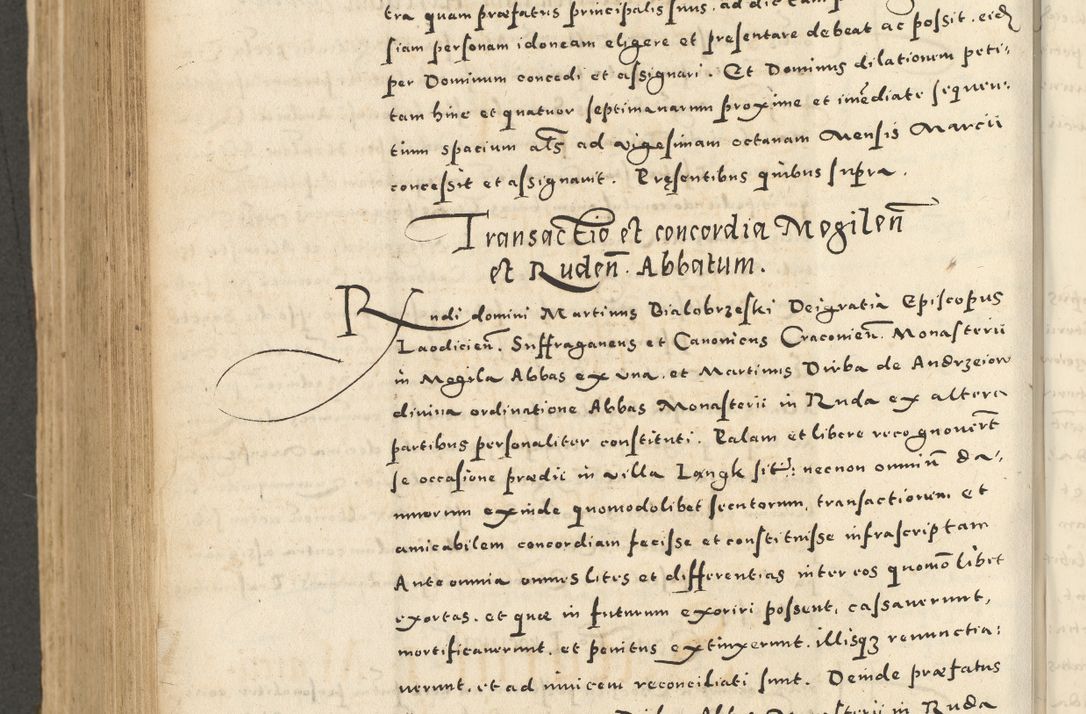 tra quam præfatus principalis suus, ad
siam personam idoneam eligere et presentare debeat ac possit. eidem
per Dominum concedi et assignari. Et Dominus dilationem peti-
tam hinc et quatuor septimanarum proxime et imēdiate sequen-
tium spacium als̄ ad vigesimam octavam Mensis Marcii
concessit et assignavit. Pręsentibus quibus supra.
Transactio et concordia Mogilen̄
et Ruden̄. Abbatum.
Rndi domini Martinus Bialobrzeski Dei gratia Episcopus
Laodicien̄. Suffraganeus et Canonicus Cracovien̄. Monasterii
in Mogila Abbas ex una, et Martinus Dirba de Andrzeiow
divina ordinatione Abbas Monasterii in Ruda ex altera
partibus personaliter constituti. Palam et libere recognoverūt
se occasione prædii in villa Langk sit: necnon omniū da-
mnorum exinde quomodolibet secutorum, transactionem et
amicabilem concordiam fecisse et constituisse infrascriptam
Ante omnia omnes lites et differentias inter eos quomōlibet
exortas, et quæ in futurum exoriri possent, cassaverunt,
mortificaverunt, et penitus extinxerunt, illisqȝ renunctia-
verunt, et ad invicem reconciliati sunt. Deinde præfatus
in Ruda